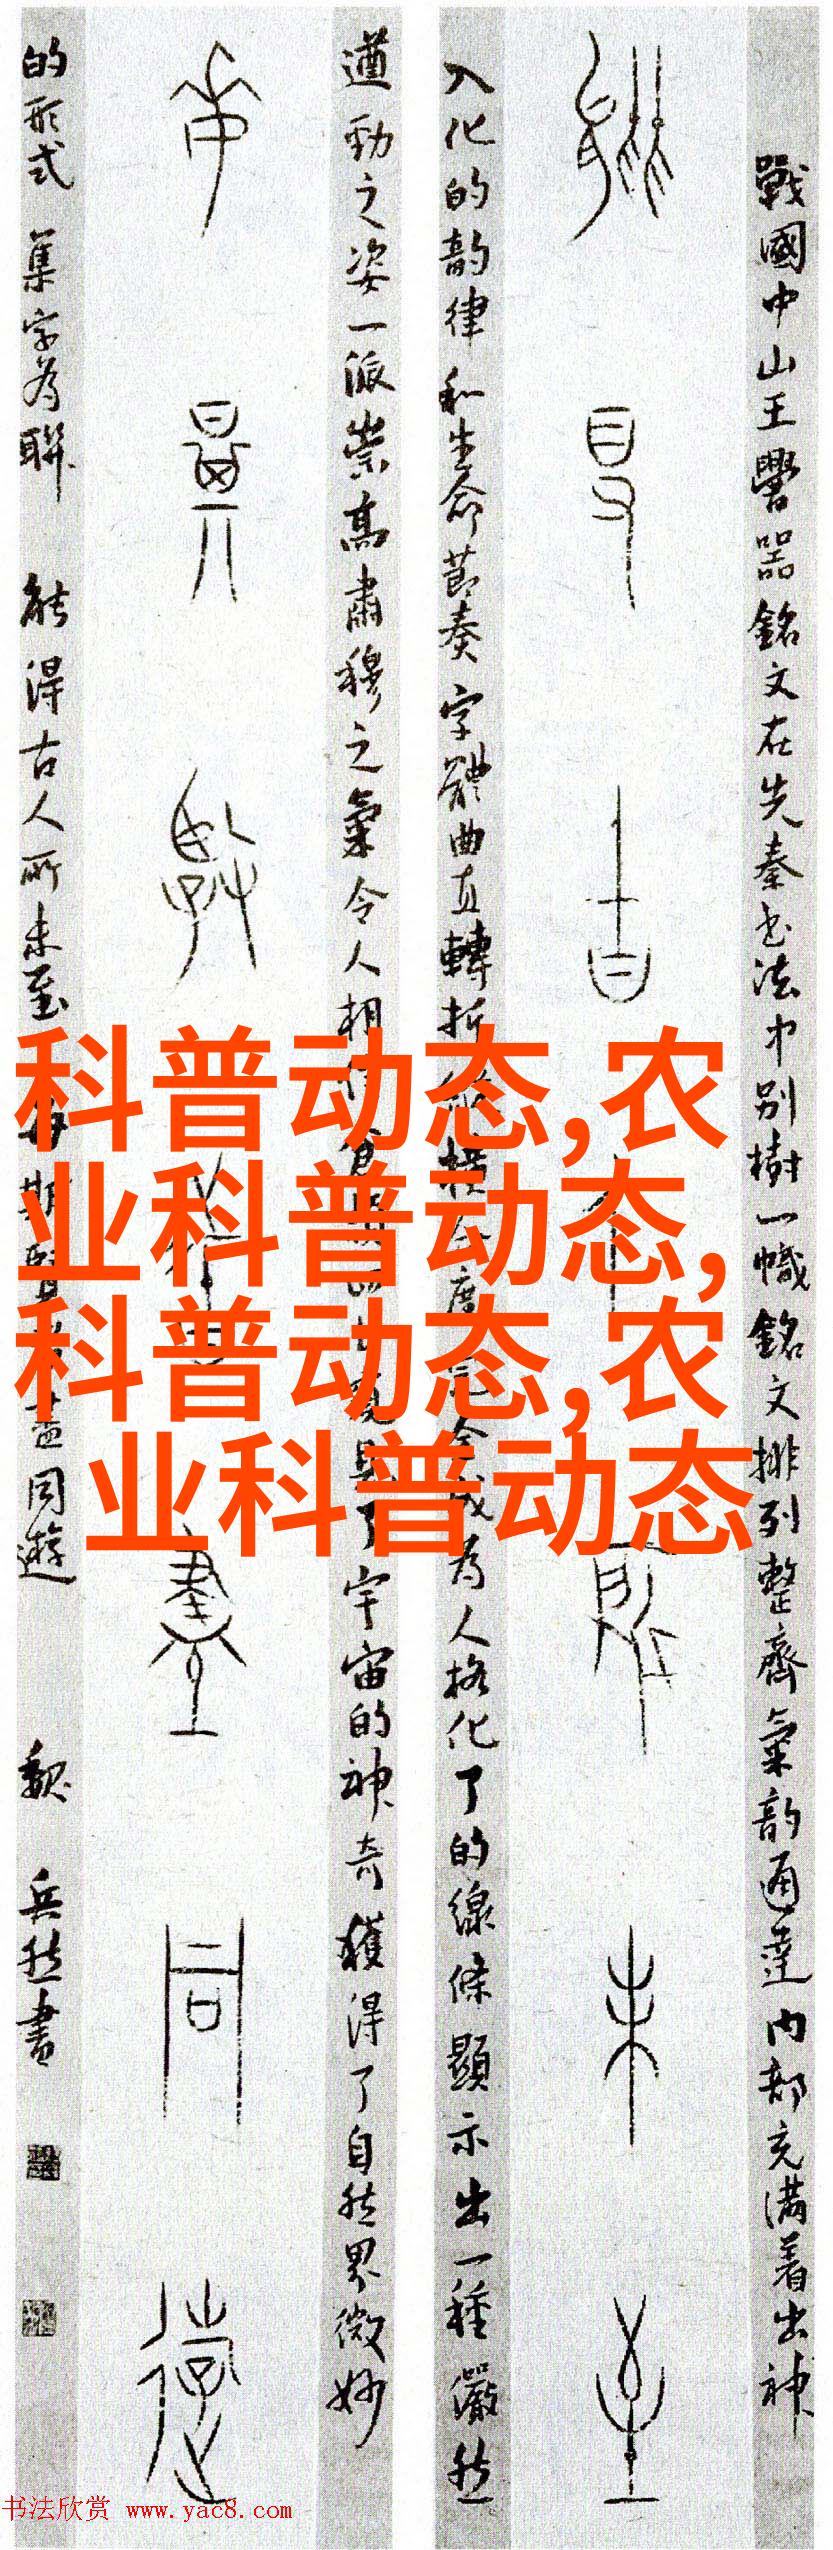 戰國中山王譽器銘文在先秦书法中别樹一幟銘文排列整齊氣韵通達内部充满着出神
能得古人所未至
入化的韵律和生命節奏字體曲直轉折
为人格化了的線條顯示出一種儼然
遒勁之姿一派崇高肅穆之氣令人相信
了宇宙的神奇獲得了自然界微妙
再期賢者盡同遊
的形式集字为聯 能得古人所未至
盡同遊 魏 兵然書
科普动态,农
业科普动态,
科普动态,农
业科普动态
书法欣赏 www.yac8.com